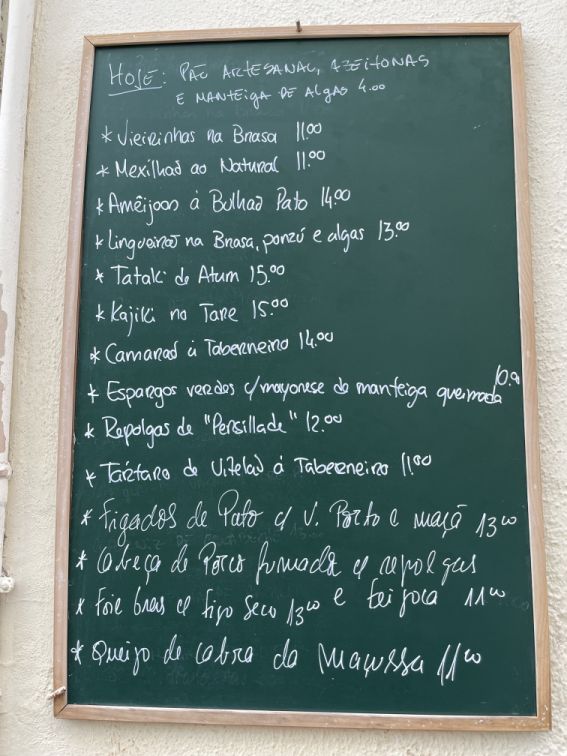 HOJE: PÃO ARTESANAL, AZEITONAS
E MANTEIGA DE AlgAS 4.00
* Vieirinhas na Brasa 11.00
* Mexilhaõ ao Natural 11.00
* Amêijoas á Bulhaõ Pato 14.00
* Lingueiraõ na Brasa, ponzú e algas 13.00
* Tataki de Atum 15.00
* Kajiki no Tare 15.00
* Camaraõ á Taberneiro 14.00
* Espargos verdes c/mayonese de manteiga queimada 10.00
* Repolgas de "Persillade" 12.00
* Tártaro de Vitelaõ á Taberneiro 11.00
* Figados de Pato c/ V. Porto e maçã 13.00
* Cabeça de Porco fumada c/ repolgas
e feijoca 11.00
* Foie Gras c/ figo seco 13.00
* Queijo de cabra da Maçussa 11.00